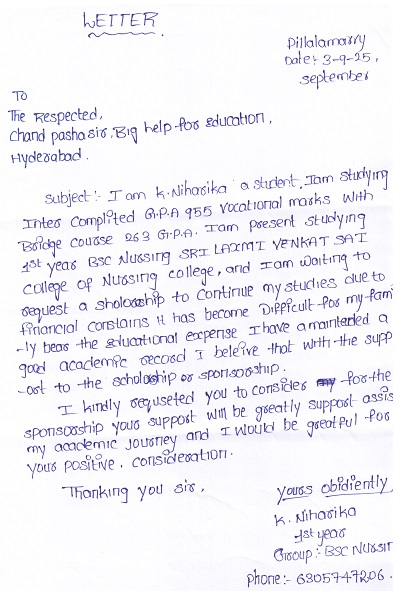 LETTER
Pillalamarry
Date:- 3-9-25,
September
To
The Respected,
Chand pasha sir, Big help for Education,
Hyderabad.
Subject:- I am K. Niharika a student, Iam studying
Inter Complited G.P.A 955 Vocational marks With
Bridge Course 263 G.P.A. Iam present studying
1st year BSC Nussing SRI LAXMI VENKAT SAI
College of Nussing college, and Iam Waiting to
request a sholorship to Continue my studies due to
financial constains it has become Difficult for my fam
-ly bear the educational expense I have a maintained a
good academic record I beleive that with the supp
-ort to the scholorship or sponsorship.
I kindly requseted you to consider my for the
sponsorship your support will be greatly support assis
my academic journey and I would be greatful for
your positive. consideration.
Thanking you sir,
yours obidiently
K. Niharika
1st year
Group:- BSC Nussin
Phone:- 6305747206.